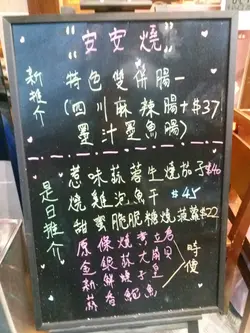 "安安燒"
新推介
特色雙併腸-
(四川麻辣腸+ $37
墨汁墨魚腸)
是日推介
惹味蒜蓉生燒茄子$40
燒雞泡魚干 $45
甜蜜脆脆糖燒菠蘿$22
原條燒
金銀蒜大扇貝
新鮮燒
蒜香鮑魚
時價